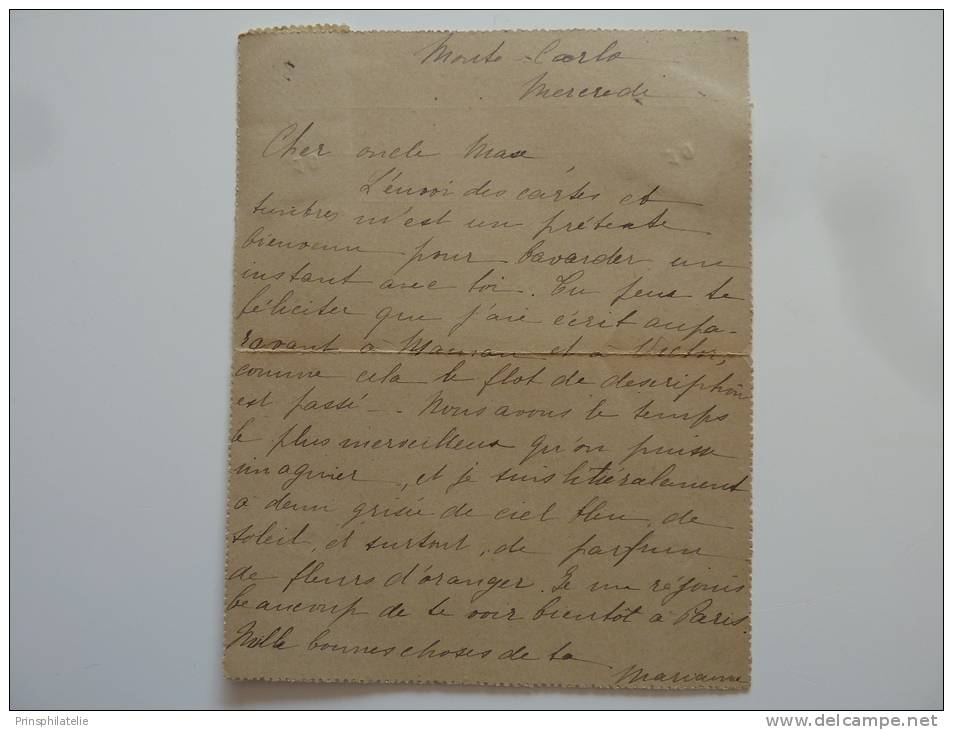 Monte-Carlo
Mercredi
Cher oncle Max
L'envoi des cartes et
timbres m'est un prétexte
bienvenu pour bavarder un
instant avec toi. Tu peux te
féliciter que j'aie écrit aupa-
ravant à Maman et à Victor,
comme cela le flot de description
est passé -. Nous avons le temps
le plus merveilleux qu'on puisse
imaginer, et je suis littéralement
à demi grisée de ciel bleu, de
soleil, et surtout, de parfum
de fleurs d'oranger. Je me réjouis
beaucoup de te voir bientôt à Paris.
Mille bonnes choses de ta
Marianne
Prinsphilatelie
www.delcampe.net